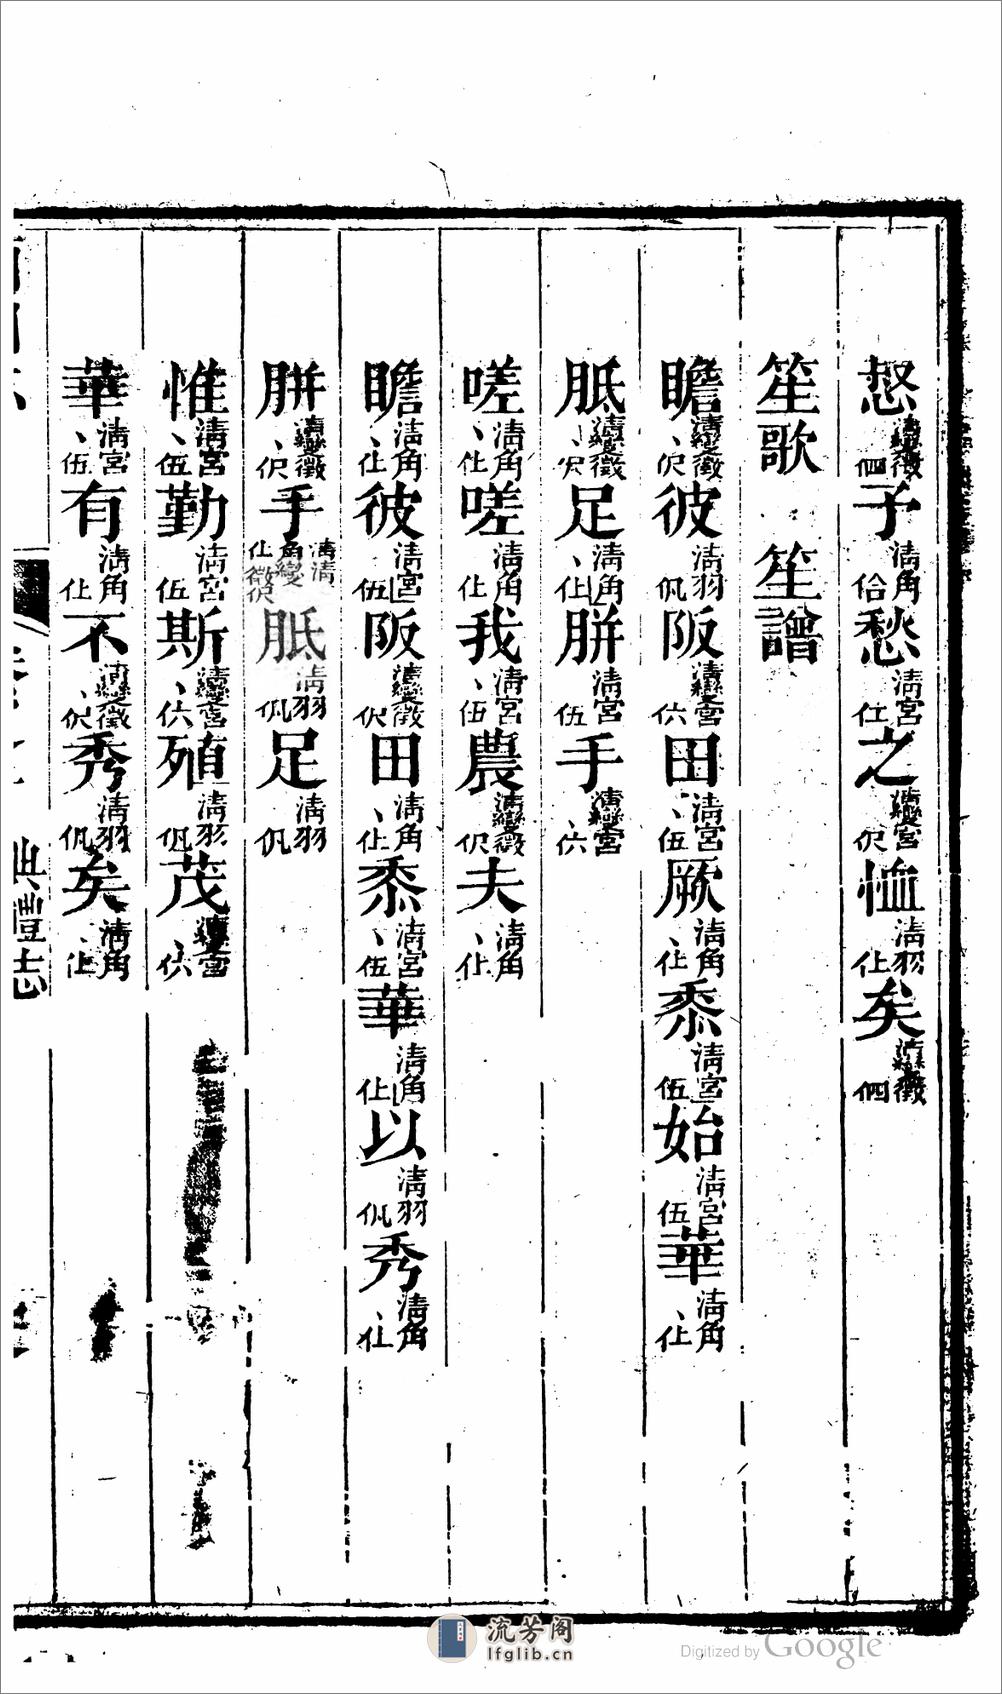 慭清變徵伵子清角佮愁清宮仩之清變宮伬恤清羽仩矣清變徵伵
笙歌　笙譜
瞻清變徵、伬彼清羽㐸阪清變宮六田清宮、伍厥清角、仩黍清宮伍始清宮伍華清角、仩
胝清變徵、伬足清角、仩胼清宮伍手清變宮、六
嗟清角、仩嗟清角仩我清宮、伍農清變徵伬夫清角、仩
瞻清角、仩彼清宮伍阪清變徵伬田清角、仩黍清宮、伍華清角仩以清羽㐸秀清角、仩
胼清變徵、伬手清角清變徵仩伬胝清羽㐸足清羽㐸
惟清宮、伍勤清宮伍斯清變宮、六殖清羽㐸茂清變宮、六
華清宮、伍有清角仩不清變徵、伬秀清羽㐸矣清角、仩
典禮志
流芳阁
lfglib.cn
Digitized by Google